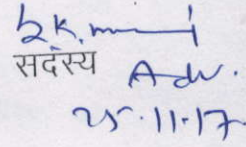 सदस्य Adv.
25.11.17